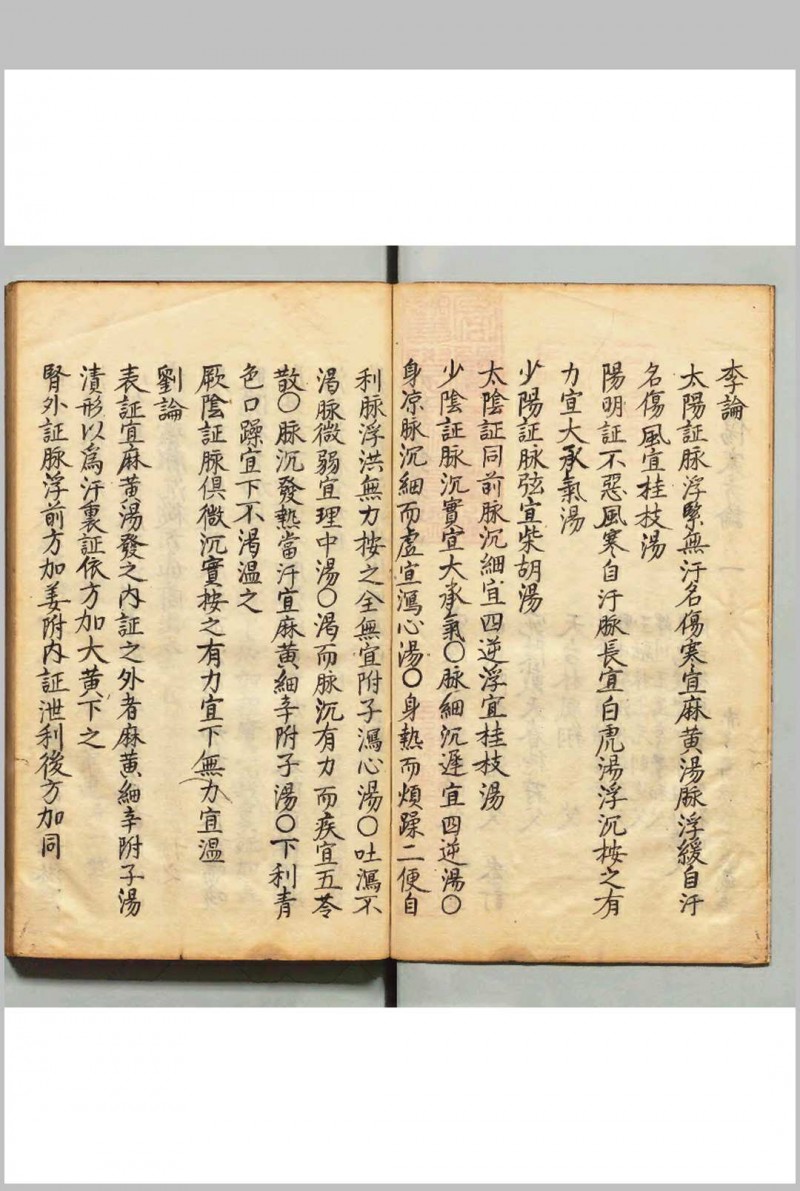 李論
太陽証脉浮緊無汗名傷寒宜麻黄湯脉浮緩自汗
名傷風宜桂枝湯
陽明証不惡風寒自汗脉長宜白虎湯浮沉按之有
力宜大承氣湯
少陽証脉弦宜柴胡湯
太陰証同前脉沉細宜四逆浮宜桂枝湯
少陰証脉沉實宜大承氣〇脉細沉遲宜四逆湯〇
身凉脉沉細而虚宜瀉心湯〇身熱而煩躁二便自
利脉浮洪無力按之全無宜附子瀉心湯〇吐瀉不
渴脉微弱宜理中湯〇渴而脉沉有力而疾宜五苓
散〇脉沉發熱當汗宜麻黄細辛附子湯〇下利青
色口躁宜下不渴温之
厥陰証脉俱微沉實按之有力宜下無力宜温
劉論
表証宜麻黄湯發之内証之外者麻黄細辛附子湯
漬形以爲汗裏証依方加大黄下之
腎外証脉浮前方加姜附内証泄利後方加同